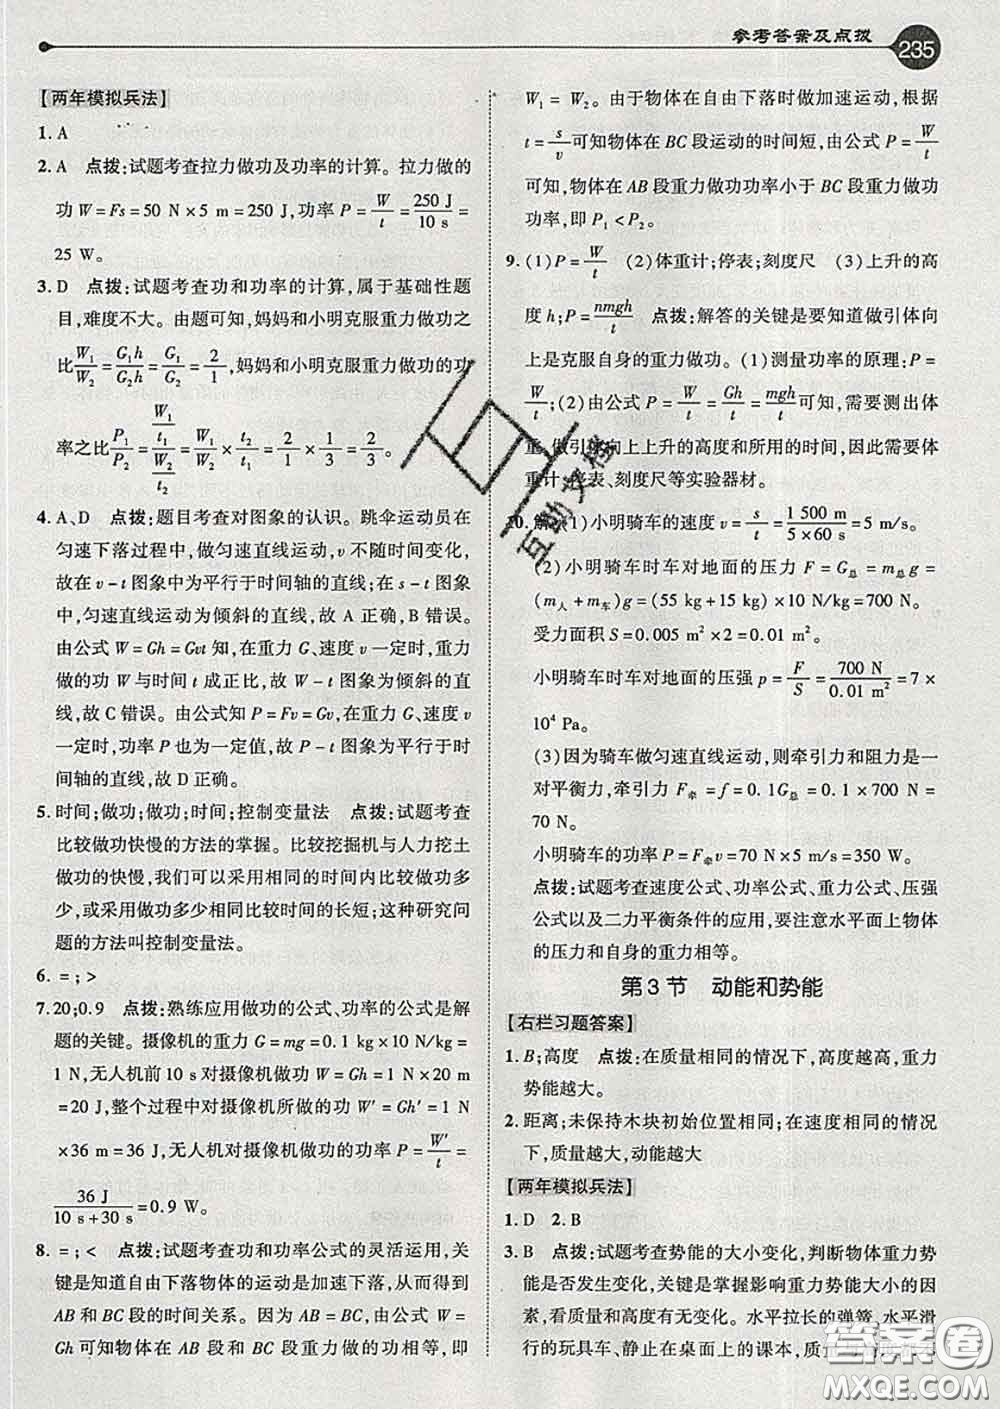 参考答案及点拨
235
【两年模拟兵法】
1. A
2. A 点拨:试题考查拉力做功及功率的计算。拉力做的
功 W = Fs = 50 N × 5 m = 250 J,功率 P = W/t = 250 J/10 s =
25 W。
3. D 点拨:试题考查功和功率的计算,属于基础性题
目,难度不大。由题可知,妈妈和小明克服重力做功之
比 W₁/W₂ = G₁h/G₂h = G₁/G₂ = 2/1,妈妈和小明克服重力做功的功
率之比 P₁/P₂ = (W₁/t₁)/(W₂/t₂) = W₁/W₂ × t₂/t₁ = 2/1 × 1/3 = 2/3。
4. A、D 点拨:题目考查对图象的认识。跳伞运动员在
匀速下落过程中,做匀速直线运动,v 不随时间变化,
故在 v - t 图象中为平行于时间轴的直线;在 s - t 图象
中,匀速直线运动为倾斜的直线,故 A 正确,B 错误。
由公式 W = Gh = Gvt 知,在重力 G、速度 v 一定时,重力
做的功 W 与时间 t 成正比,故 W - t 图象为倾斜的直
线,故 C 错误。由公式知 P = Fv = Gv,在重力 G、速度 v
一定时,功率 P 也为一定值,故 P - t 图象为平行于时
间轴的直线,故 D 正确。
5. 时间;做功;做功;时间;控制变量法 点拨:试题考查
比较做功快慢的方法的掌握。比较挖掘机与人力挖土
做功的快慢,我们可以采用相同的时间内比较做功多
少,或采用做功多少相同比较时间的长短;这种研究问
题的方法叫控制变量法。
6. = ; >
7. 20;0.9 点拨:熟练应用做功的公式、功率的公式是解
题的关键。摄像机的重力 G = mg = 0.1 kg × 10 N/kg =
1 N,无人机前 10 s 对摄像机做功 W = Gh = 1 N × 20 m
= 20 J,整个过程中对摄像机所做的功 W′ = Gh′ = 1 N
× 36 m = 36 J,无人机对摄像机做功的功率 P = W′/t =
36 J/(10 s + 30 s) = 0.9 W。
8. = ; < 点拨:试题考查功和功率公式的灵活运用,关
键是知道自由下落物体的运动是加速下落,从而得到
AB 和 BC 段的时间关系。因为 AB = BC,由公式 W =
Gh 可知物体在 AB 段和 BC 段重力做功的功相等,即
W₁ = W₂。由于物体在自由下落时做加速运动,根据
t = s/v 可知物体在 BC 段运动的时间短,由公式 P = W/t
可知,物体在 AB 段重力做功功率小于 BC 段重力做功
功率,即 P₁ < P₂。
9. (1) P = W/t (2)体重计;停表;刻度尺 (3)上升的高
度 h;P = nmgh/t 点拨:解答的关键是要知道做引体向
上是克服自身的重力做功。(1)测量功率的原理:P =
W/t;(2)由公式 P = W/t = Gh/t = mgh/t 可知,需要测出体
重、做引体向上上升的高度和所用的时间,因此需要体
重计、停表、刻度尺等实验器材。
10. 解:(1)小明骑车的速度 v = s/t = 1 500 m/(5 × 60 s) = 5 m/s。
(2)小明骑车时车对地面的压力 F = G总 = m总g =
(m人 + m车)g = (55 kg + 15 kg) × 10 N/kg = 700 N。
受力面积 S = 0.005 m² × 2 = 0.01 m²。
小明骑车时车对地面的压强 p = F/S = 700 N/0.01 m² = 7 ×
10⁴ Pa。
(3)因为骑车做匀速直线运动,则牵引力和阻力是一
对平衡力,牵引力 F牵 = f = 0.1G总 = 0.1 × 700 N =
70 N。
小明骑车的功率 P = F牵v = 70 N × 5 m/s = 350 W。
点拨:试题考查速度公式、功率公式、重力公式、压强
公式以及二力平衡条件的应用,要注意水平面上物体
的压力和自身的重力相等。
第 3 节 动能和势能
【右栏习题答案】
1. B;高度 点拨:在质量相同的情况下,高度越高,重力
势能越大。
2. 距离;未保持木块初始位置相同;在速度相同的情况
下,质量越大,动能越大
【两年模拟兵法】
1. D 2. B
3. B 点拨:试题考查势能的大小变化,判断物体重力势
能是否发生变化,关键是掌握影响重力势能大小的因
素,看质量和高度有无变化。水平拉长的弹簧、水平滑
行的玩具车、静止在桌面上的课本,质量
百互助文档
答案圈
MXQE.COM